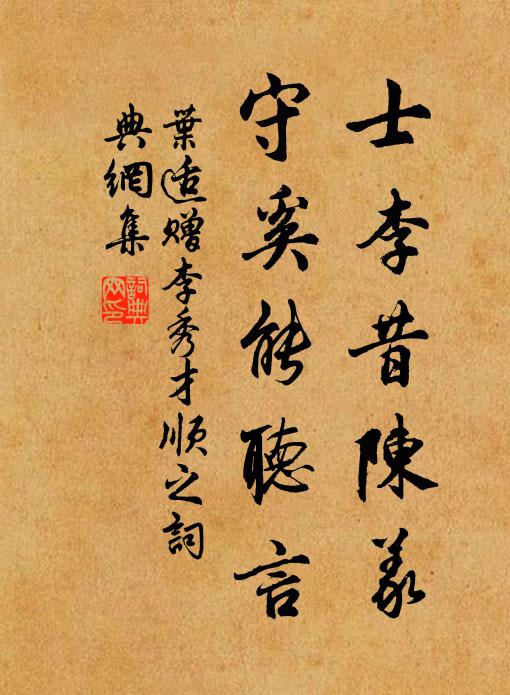 士李昔陳義
守奚能聽言
葉适贈李秀才順之詞
典網集
詞典
网印